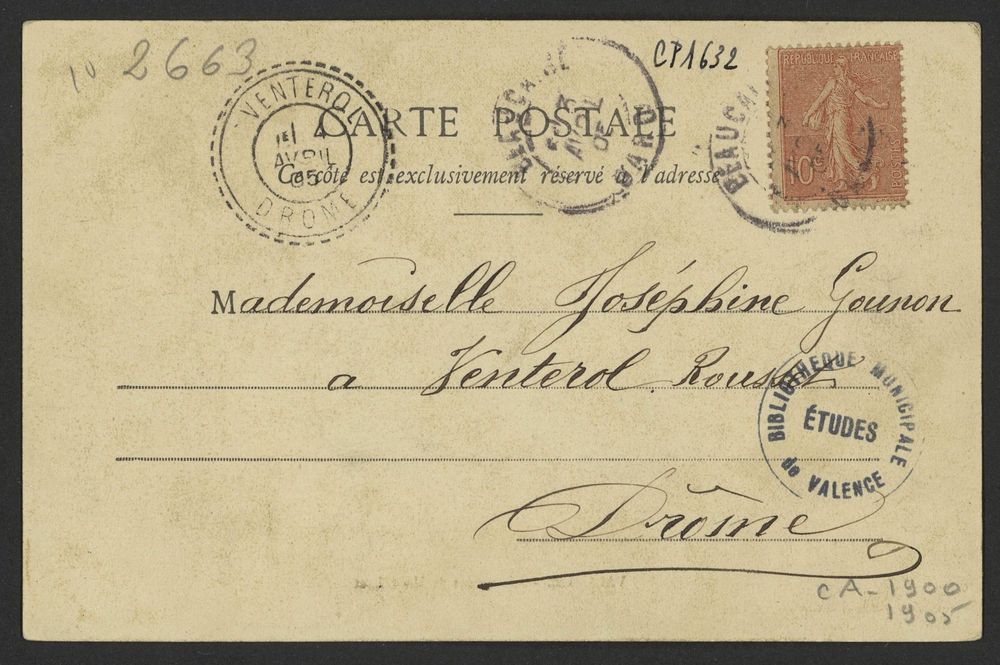 10 2663
CP1632
VENTEROL
4
AVRIL
05
DROME
BEAUCAIRE
AVRIL
05
GARD
BEAUCAI
REPUBLIQUE FRANÇAISE
10c
POSTES
CARTE POSTALE
Ce côté est exclusivement réservé à l'adresse
Mademoiselle Joséphine Gounon
a Venterol Rousset
Drôme
BIBLIOTHEQUE MUNICIPALE
ÉTUDES
de VALENCE
CA-1900
1905